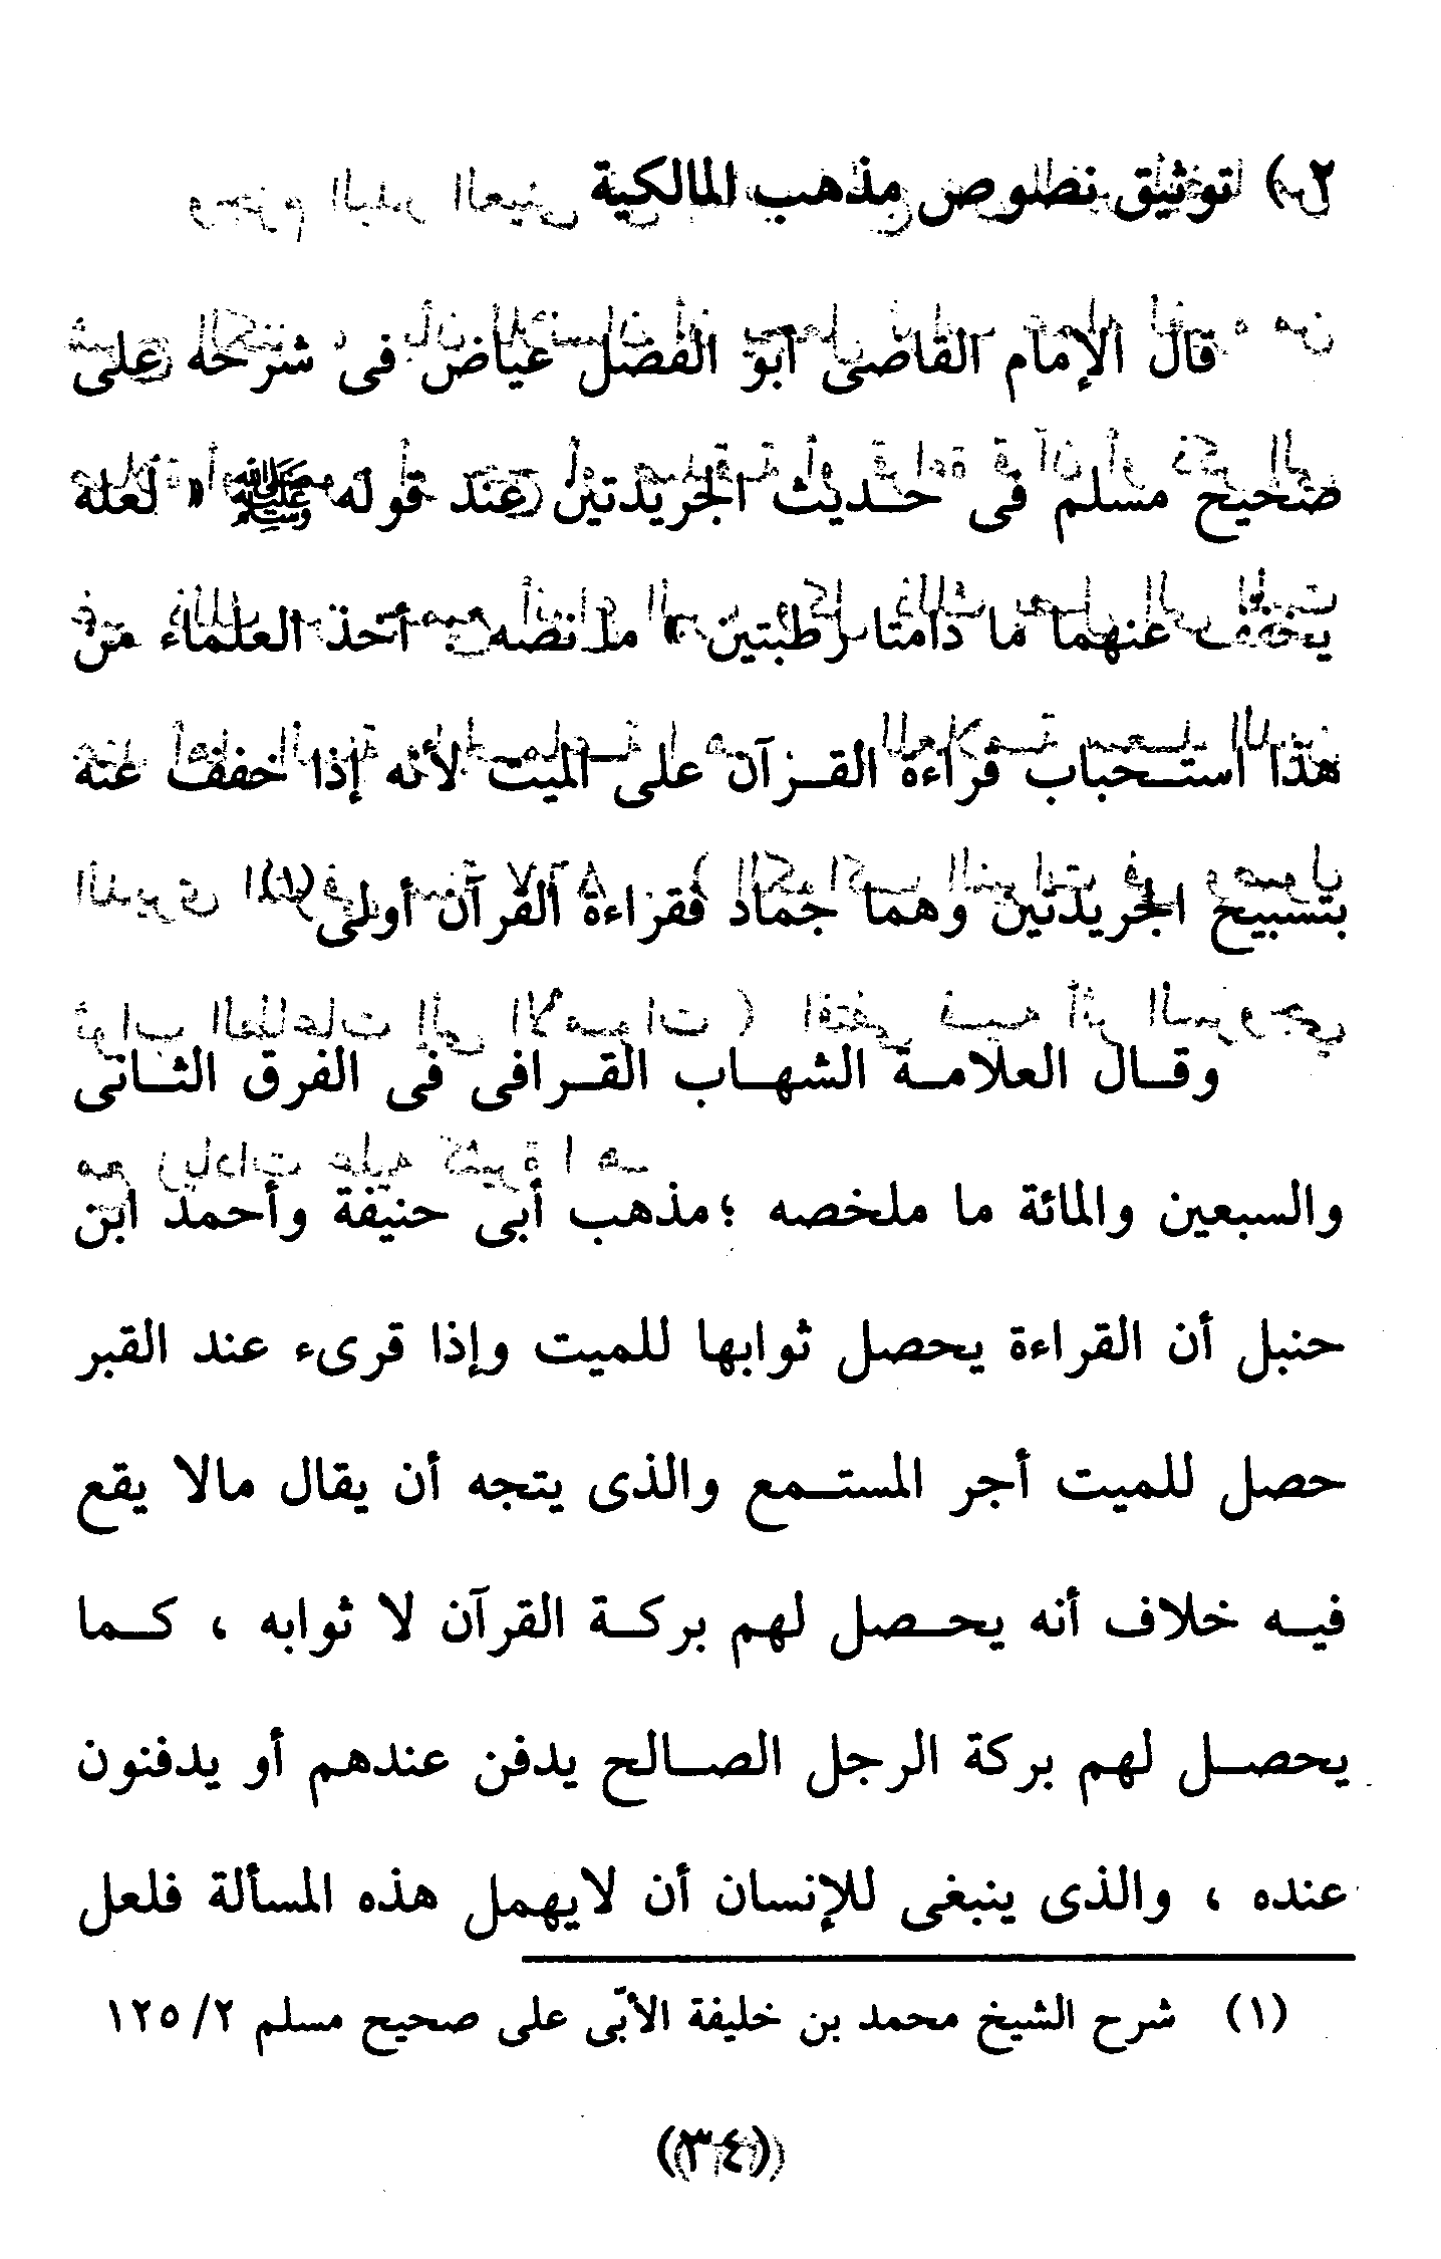 ٢) توثيق نصوص مذهب المالكية
قال الإمام القاضى أبو الفضل عياض فى شرحه على
صحيح مسلم فى حديث الجريدتين عند قوله ﷺ « لعله
يخفف عنهما ما دامتا رطبتين » ما نصه : أخذ العلماء من
هذا استحباب قراءة القرآن على الميت لأنه إذا خفف عنه
بتسبيح الجريدتين وهما جماد فقراءة القرآن أولى(١)
وقال العلامة الشهاب القرافى فى الفرق الثانى
والسبعين والمائة ما ملخصه ؛ مذهب أبى حنيفة وأحمد ابن
حنبل أن القراءة يحصل ثوابها للميت وإذا قرىء عند القبر
حصل للميت أجر المستمع والذى يتجه أن يقال مالا يقع
فيه خلاف أنه يحصل لهم بركة القرآن لا ثوابه ، كما
يحصل لهم بركة الرجل الصالح يدفن عندهم أو يدفنون
عنده ، والذى ينبغى للإنسان أن لايهمل هذه المسألة فلعل
(١) شرح الشيخ محمد بن خليفة الأبّى على صحيح مسلم ٢/ ١٢٥
(٣٤)